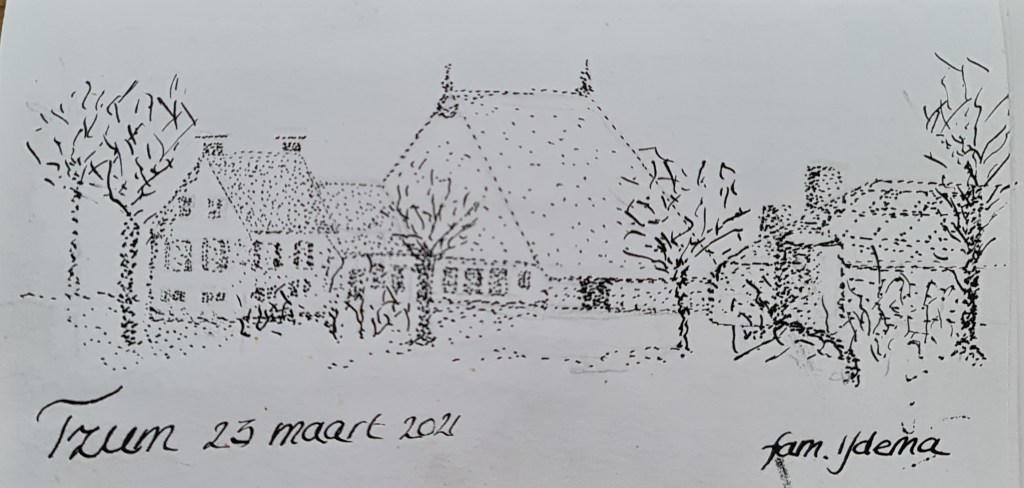 Tzum 23 maart 2021
fam. IJdema